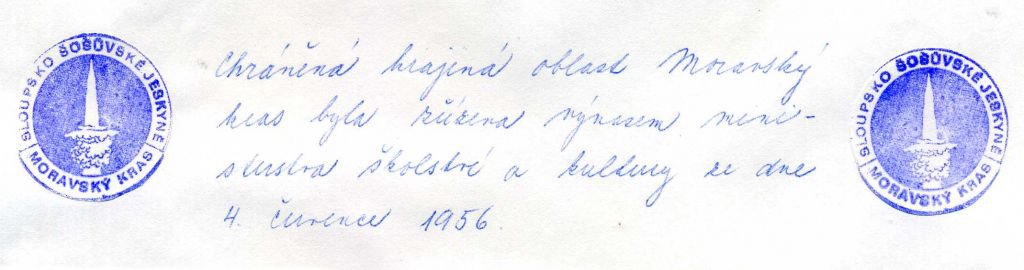 SLOUPSKO ŠOŠŮVSKÉ JESKYNĚ
MORAVSKÝ KRAS
Chráněná krajiná oblast Moravský
kras byla zřízena výnosem mini-
sterstva školství a kultury ze dne
4. července 1956.
SLOUPSKO ŠOŠŮVSKÉ JESKYNĚ
MORAVSKÝ KRAS